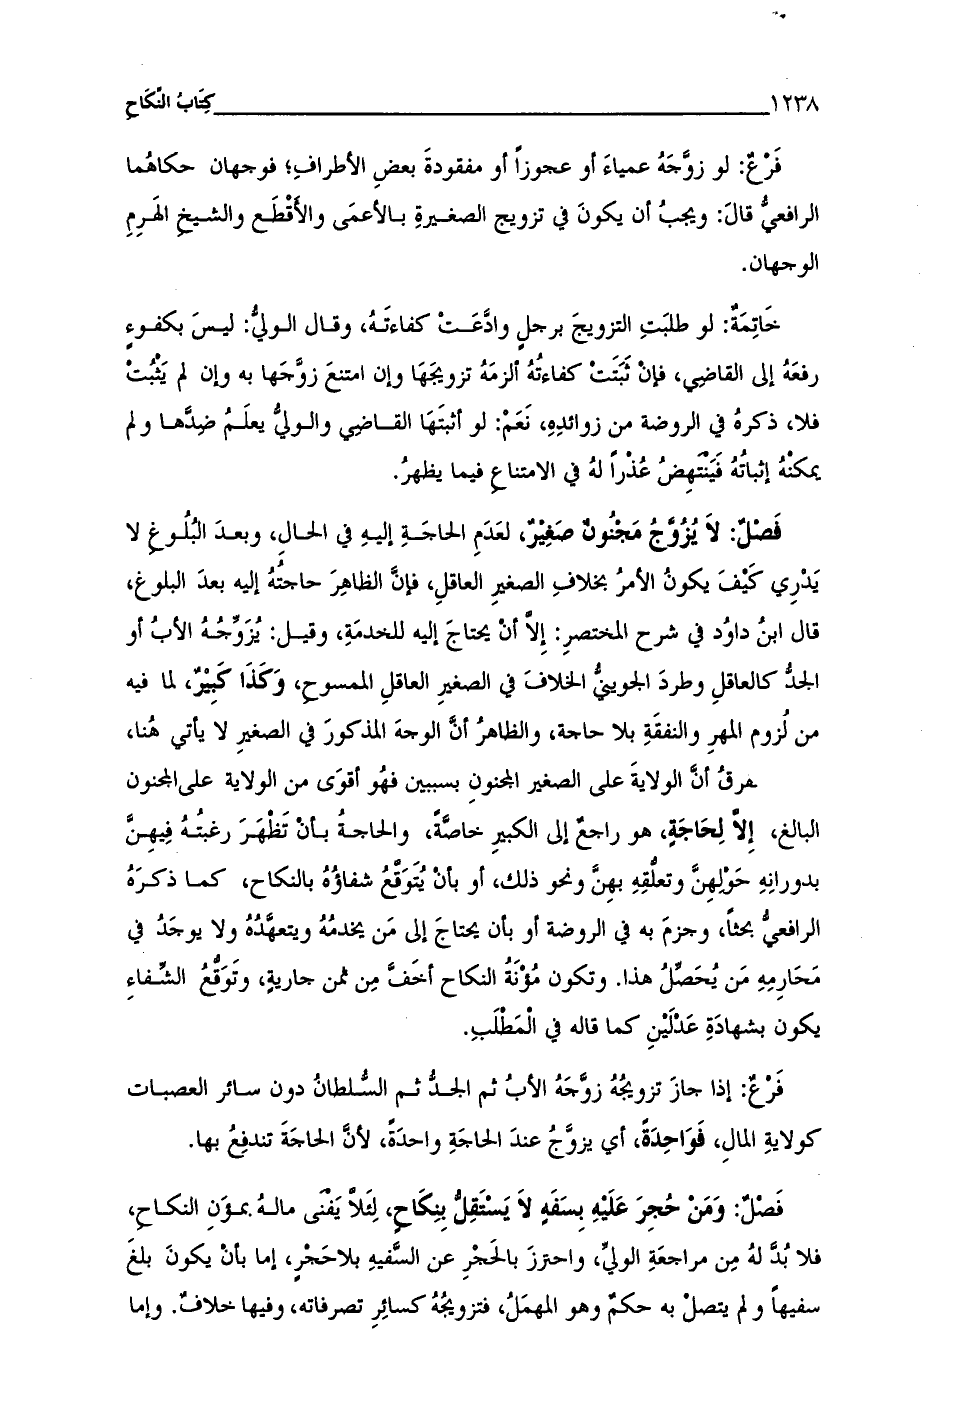 ١٢٣٨ كِتَابُ النِّكَاحِ
فَرْعٌ: لو زوَّجَهُ عمياءَ أو عجوزاً أو مفقودةَ بعضِ الأطرافِ؛ فوجهان حكاهُما
الرافعيُّ قالَ: ويجبُ أن يكونَ في تزويج الصغيرةِ بالأعمَى والأَقْطَعِ والشيخِ الهَرِمِ
الوجهان.
خَاتِمَةٌ: لو طلبَتِ التزويجَ برجلٍ وادَّعَتْ كفاءتَهُ، وقال الوليُّ: ليسَ بكفوءٍ
رفعَهُ إلى القاضِي، فإنْ ثَبَتَتْ كفاءتُهُ ألزمَهُ تزويجَهَا وإن امتنعَ زوَّجَها به وإن لم يَثْبُتْ
فلا، ذكرهُ في الروضة من زوائدِهِ، نَعَمْ: لو أثبتَهَا القاضِي والوليُّ يعلَمُ ضِدَّها ولم
يمكنْهُ إثباتُهُ فَيَنْتَهِضُ عُذْراً لهُ في الامتناعِ فيما يظهرُ.
فَصْلٌ: لاَ يُزَوَّجُ مَجْنُونٌ صَغِيْرٌ، لعَدَمِ الحاجَةِ إليهِ في الحالِ، وبعدَ البُلُوغِ لا
يَدْرِي كَيْفَ يكونُ الأمرُ بخلافِ الصغيرِ العاقلِ، فإنَّ الظاهِرَ حاجتُهُ إليه بعدَ البلوغِ،
قال ابنُ داوُد في شرح المختصرِ: إلاَّ أنْ يحتاجَ إليه للخدمَةِ، وقيل: يُزَوِّجُهُ الأبُ أو
الجدُّ كالعاقلِ وطردَ الجوينيُّ الخلافَ في الصغيرِ العاقلِ الممسوحِ، وَكَذَا كَبِيْرٌ، لما فيه
من لُزوم المهرِ والنفقَةِ بلا حاجة، والظاهرُ أنَّ الوجهَ المذكورَ في الصغيرِ لا يأتي هُنا،
فرقُ أنَّ الولايةَ على الصغير المجنونِ بسببين فهُو أقوَى من الولاية على المجنون
البالغ، إِلاَّ لِحَاجَةٍ، هو راجعٌ إلى الكبيرِ خاصَّةً، والحاجةُ بأنْ تَظْهَرَ رغبتُهُ فِيهِنَّ
بدورانِهِ حَوْلِهِنَّ وتعلُّقِهِ بهِنَّ ونحو ذلك، أو بأنْ يُتَوَقَّعُ شفاؤُهُ بالنكاح، كما ذكرَهُ
الرافعيُّ بحثاً، وجزمَ به في الروضة أو بأن يحتاجَ إلى مَن يخدمُهُ ويتعهَّدُهُ ولا يوجَدُ في
مَحَارِمِهِ مَن يُحَصِّلُ هذا. وتكون مُؤْنَةُ النكاح أخَفَّ مِن ثمن جاريةٍ، وتَوَقُّعُ الشِّفاءِ
يكون بشهادَةِ عَدْلَيْنِ كما قاله في الْمَطْلَبِ.
فَرْعٌ: إذا جازَ تزويجُهُ زوَّجَهُ الأبُ ثم الجدُّ ثم السُّلطانُ دون سائر العصبات
كولايةِ المالِ، فَوَاحِدَةً، أي يزوَّجُ عندَ الحاجَةِ واحدَةً، لأنَّ الحاجَةَ تندفِعُ بها.
فَصْلٌ: وَمَنْ حُجِرَ عَلَيْهِ بِسَفَهٍ لاَ يَسْتَقِلُّ بِنِكَاحٍ، لِئَلاَّ يَفْنَى مالهُ بمؤنِ النكاحِ،
فلا بُدَّ لهُ مِن مراجعَةِ الوليِّ، واحترزَ بالحَجْرِ عن السَّفيهِ بلاحَجْرٍ، إما بأنْ يكونَ بلغَ
سفيهاً ولم يتصلْ به حكمٌ وهو المهمَلُ، فتزويجُهُ كسائِرِ تصرفاته، وفيها خلافٌ. وإما